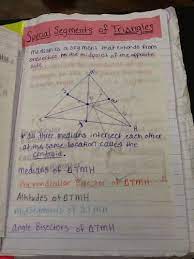 Special Segments of Triangles
Median is a segment that extends from
one vertex to the midpoint of the opposite
side.
T
M
H
* all three medians intersect each other
at the same location called the
centroid.
medians of △TMH
Perpendicular Bisector of △TMH
Altitudes of △TMH
Midsegments of △TMH
Angle Bisectors of △TMH